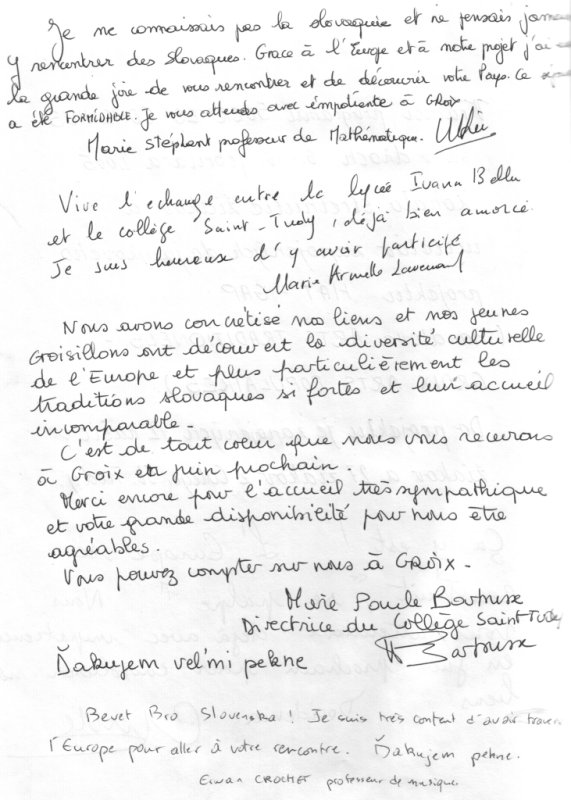 Je ne connaissais pas la slovaquie et ne pensais jamais
y rencontrer des Slovaques. Grace à l'Europe et à notre projet j'ai eu
la grande joie de vous rencontrer et de découvrir votre Pays. Ce
a été FORMIDABLE. Je vous attends avec impatiente à GROIX
Marie Stéphant professeur de Mathématique.
Vive l'echange entre le lycée Ivana Bellu
et le collège Saint-Tudy, déjà bien amorcé.
Je suis heureuse d'y avoir participé
Marie Armelle
Nous avons concrétisé nos liens et nos jeunes
Groisillons ont découvert la diversité culturelle
de l'Europe et plus particulièrement les
traditions slovaques si fortes et leur accueil
incomparable.
C'est de tout coeur que nous vous recevrons
à Groix en juin prochain.
Merci encore pour l'accueil très sympathique
et votre grande disponibilité pour nous être
agréables.
Vous pouvez compter sur nous à GROIX.
Marie Paule
Directrice du Collège Saint Tudy
Ďakujem vel'mi pekne
Bevet Bro Slovenska ! Je suis très content d'avoir traversé
l'Europe pour aller à votre rencontre. Ďakujem pekne.
Erwan CROCHET professeur de musique.